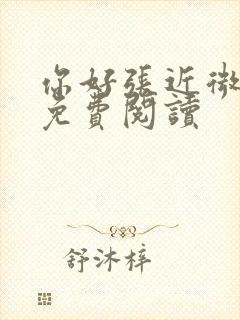 你好張近微
免費閱讀
舒沐梓